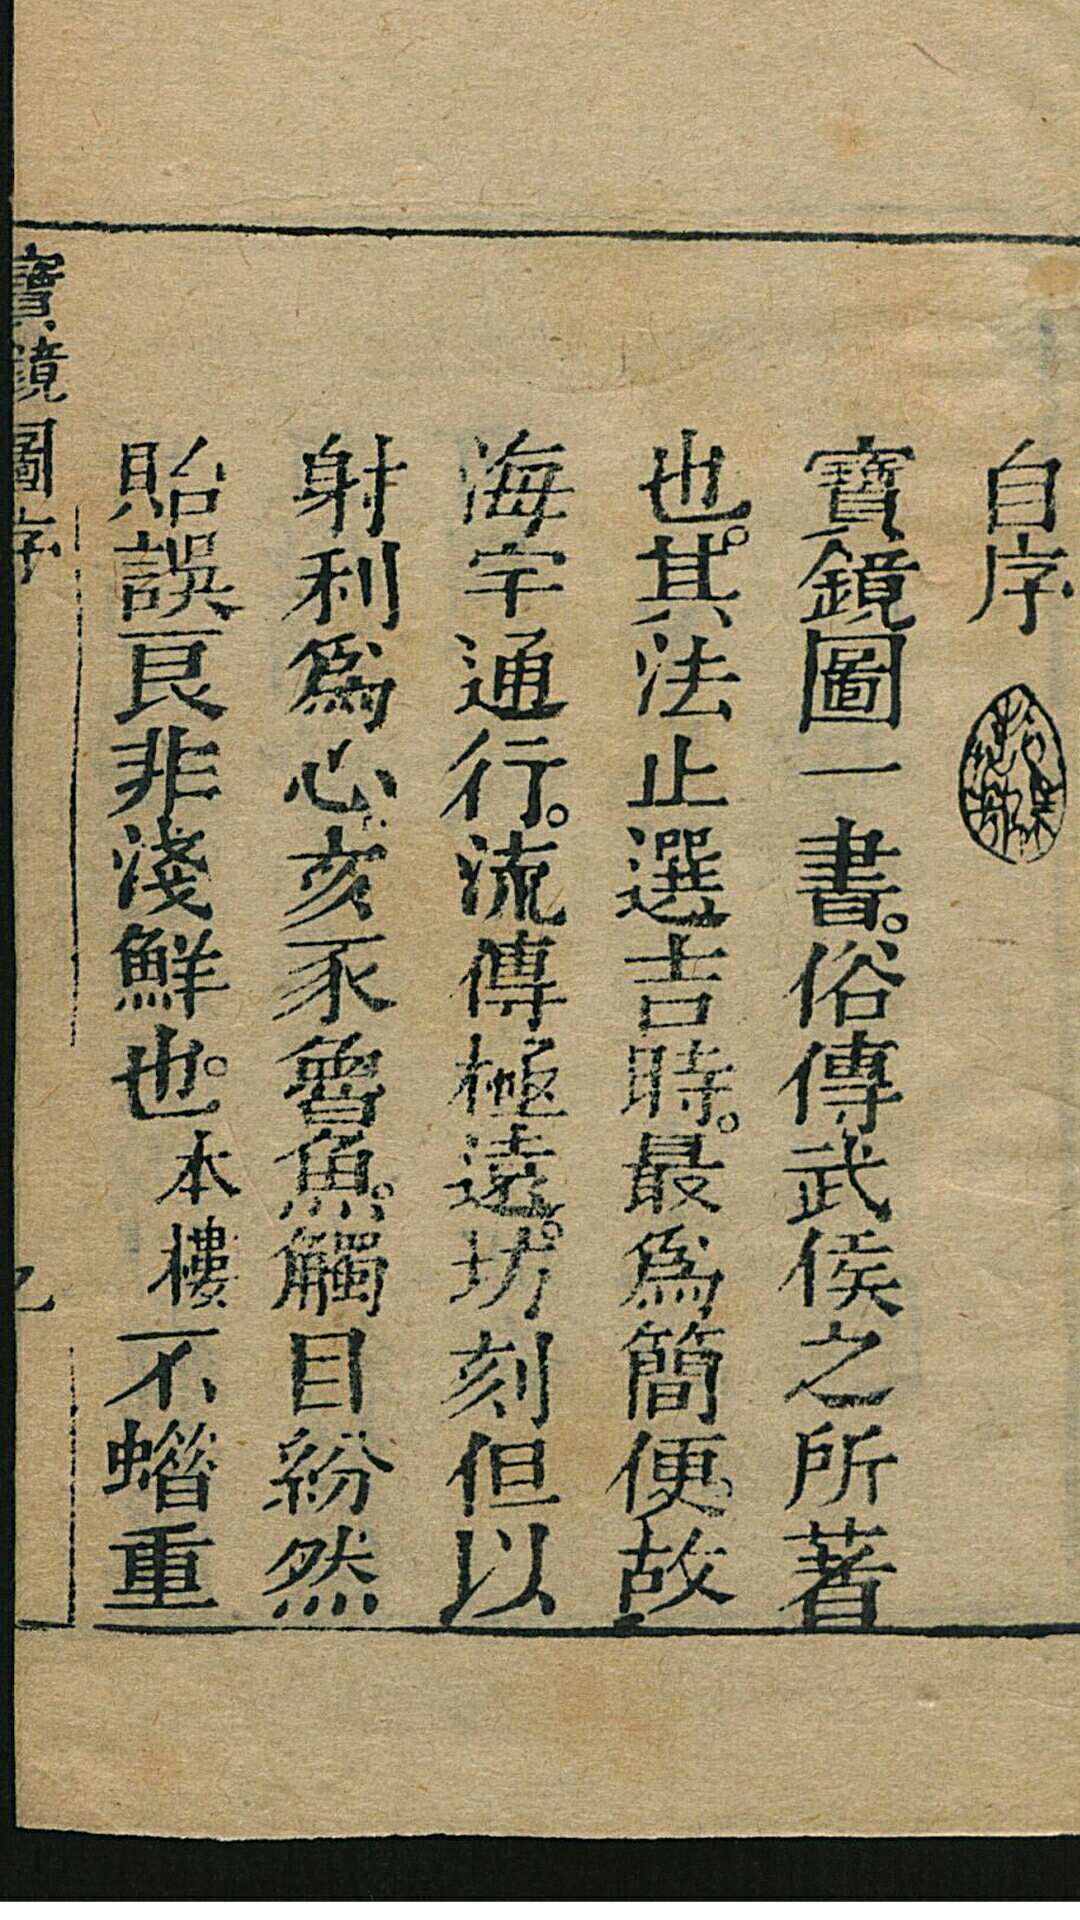 自序
寶鏡圖一書。俗傳武侯之所著
也。其法止選吉時。最爲簡便。故
海宇通行。流傳極遠。坊刻但以
射利爲心。亥豕魯魚。觸目紛然
貽誤良非淺鮮也。本樓不惜重
寶鏡圖序